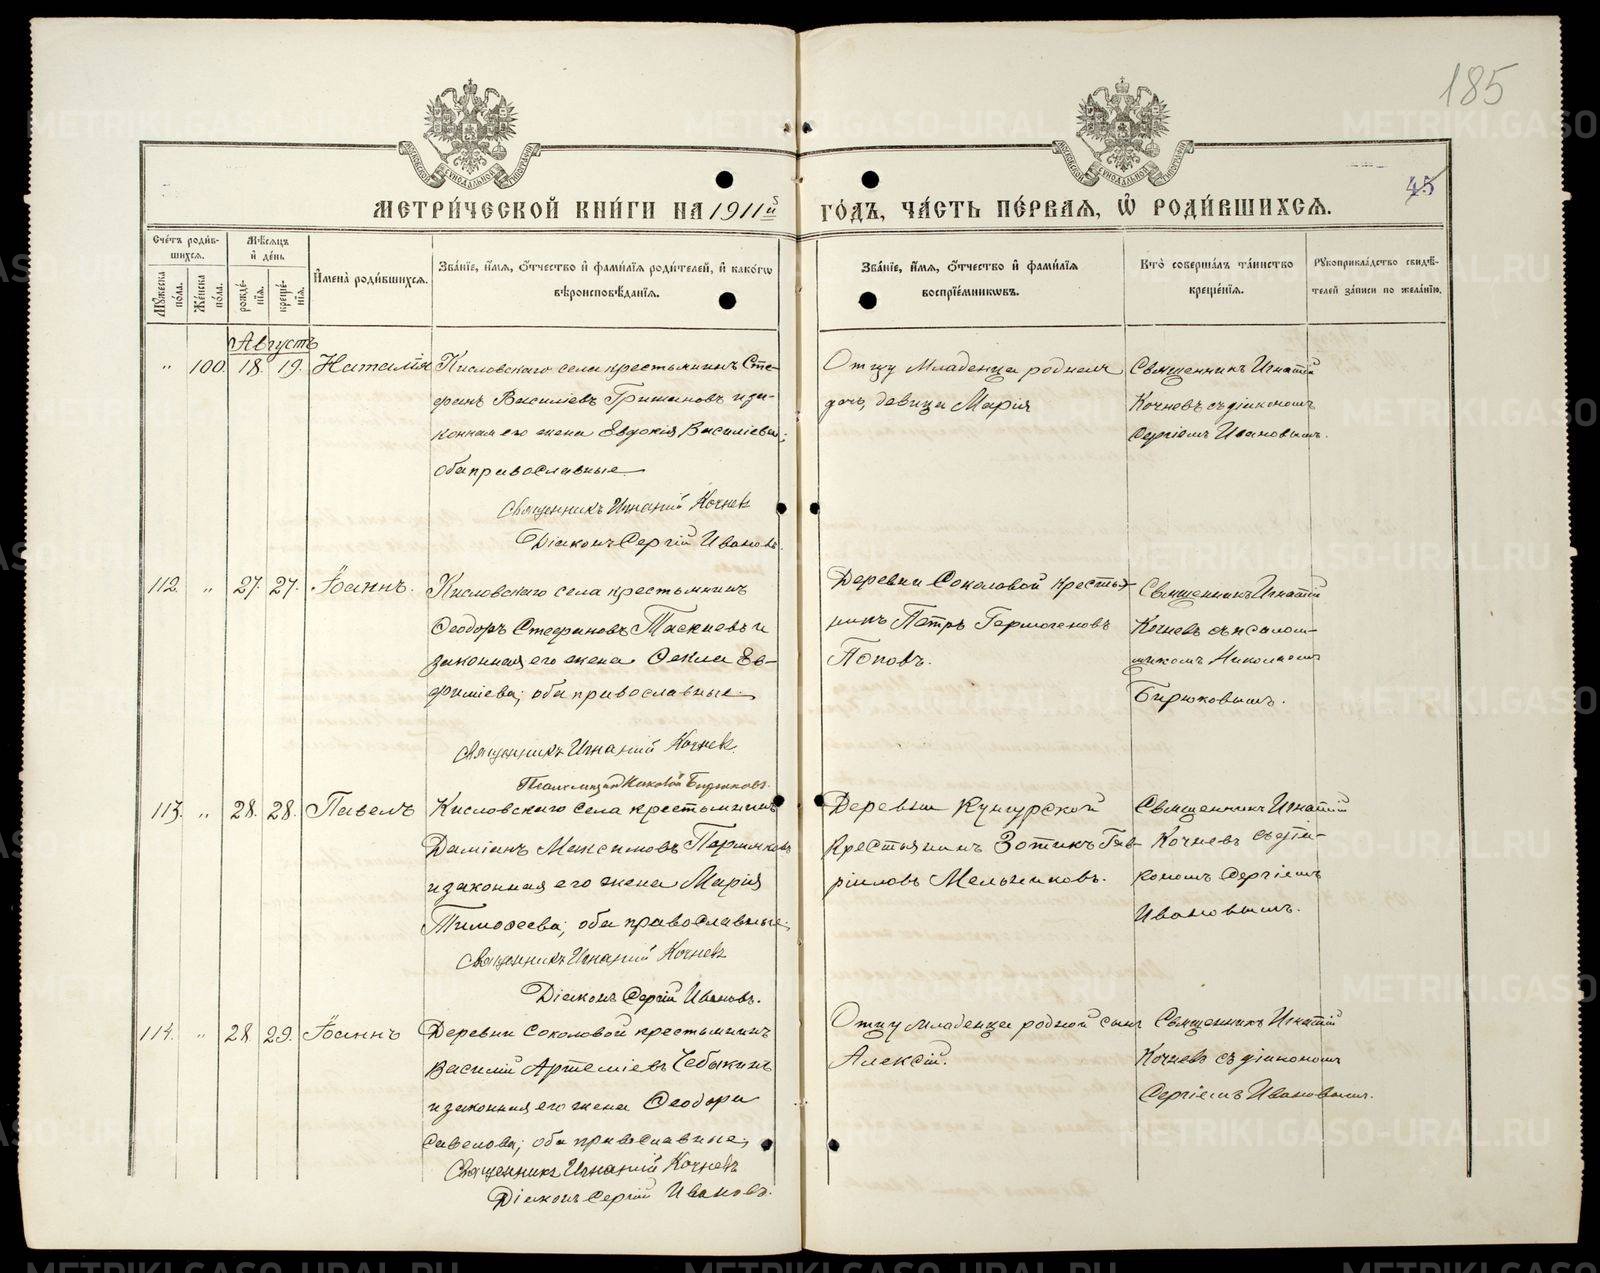 185
45
МЕТРИ́ЧЕСКОЙ КНИ́ГИ НА 1911й ГО́ДЪ, ЧА́СТЬ ПЕ́РВАЯ, Ѡ РОДИ́ВШИХСЯ.
Сче́тъ роди́в-
шихся.
Мѣ́сяцъ
и҆ де́нь
Мꙋ́жеска по́ла.
Же́нска по́ла.
рожде́-
нїѧ.
креще́-
нїѧ.
И҆мена̀ роди́вшихся.
Зва́нїе, и҆́мя, ѻ҆́тчество и҆ фами́лїя роди́телей, и҆ како́гѡ
вѣроисповѣ́данїя.
Зва́нїе, и҆́мя, ѻ҆́тчество и҆ фами́лїя
воспрїе́мниковъ.
Кто̀ соверша́лъ та́инство
креще́нїя.
Рꙋкоприкла́дство свидѣ́-
телей за́писи по жела́нїю.
Августъ
" 100. 18. 19. Наталія
Кисловскаго села крестьянинъ Сте-
фанъ Василіевъ Гришановъ и за-
конная его жена Евдокія Василіева;
оба православные
Священникъ Игнатій Кочневъ
Діаконъ Сергій Ивановъ.
Отцу младенца родная
дочь, девица Марія
Священникъ Игнатій
Кочневъ съ діакономъ
Сергіемъ Ивановымъ.
112. " 27. 27. Іоаннъ.
Кисловскаго села крестьянинъ
Ѳеодоръ Стефановъ Таскаевъ и
законная его жена Ѳекла Ев-
фиміева; оба православные.
Священникъ Игнатій Кочневъ.
Псаломщикъ Николай Бирюковъ.
Деревни Соколовой кресть-
нинъ Петръ Гермогеновъ
Поповъ.
Священникъ Игнатій
Кочневъ съ псалом-
щикомъ Николаемъ
Бирюковымъ.
113. " 28. 28. Павелъ
Кисловскаго села крестьянинъ
Даміанъ Максимовъ
и законная его жена Марія
Тимоѳеева; оба православные.
Священникъ Игнатій Кочневъ
Діаконъ Сергій Ивановъ.
Деревни Кунгурской
крестьянинъ Зотикъ Гав-
ріиловъ Мельниковъ.
Священникъ Игнатій
Кочневъ съ діа-
кономъ Сергіемъ
Ивановымъ.
114. " 28 29. Іоаннъ
Деревни Соколовой крестьянинъ
Василій Артеміевъ Чебыкинъ
и законная его жена Ѳеодора
Савелова; оба православные,
Священникъ Игнатій Кочневъ
Діаконъ Сергій Ивановъ.
Отцу младенца родной сынъ
Алексій.
Священникъ Игнатій
Кочневъ съ діакономъ
Сергіемъ Ивановымъ.
METRIKI.GASO-URAL.RU